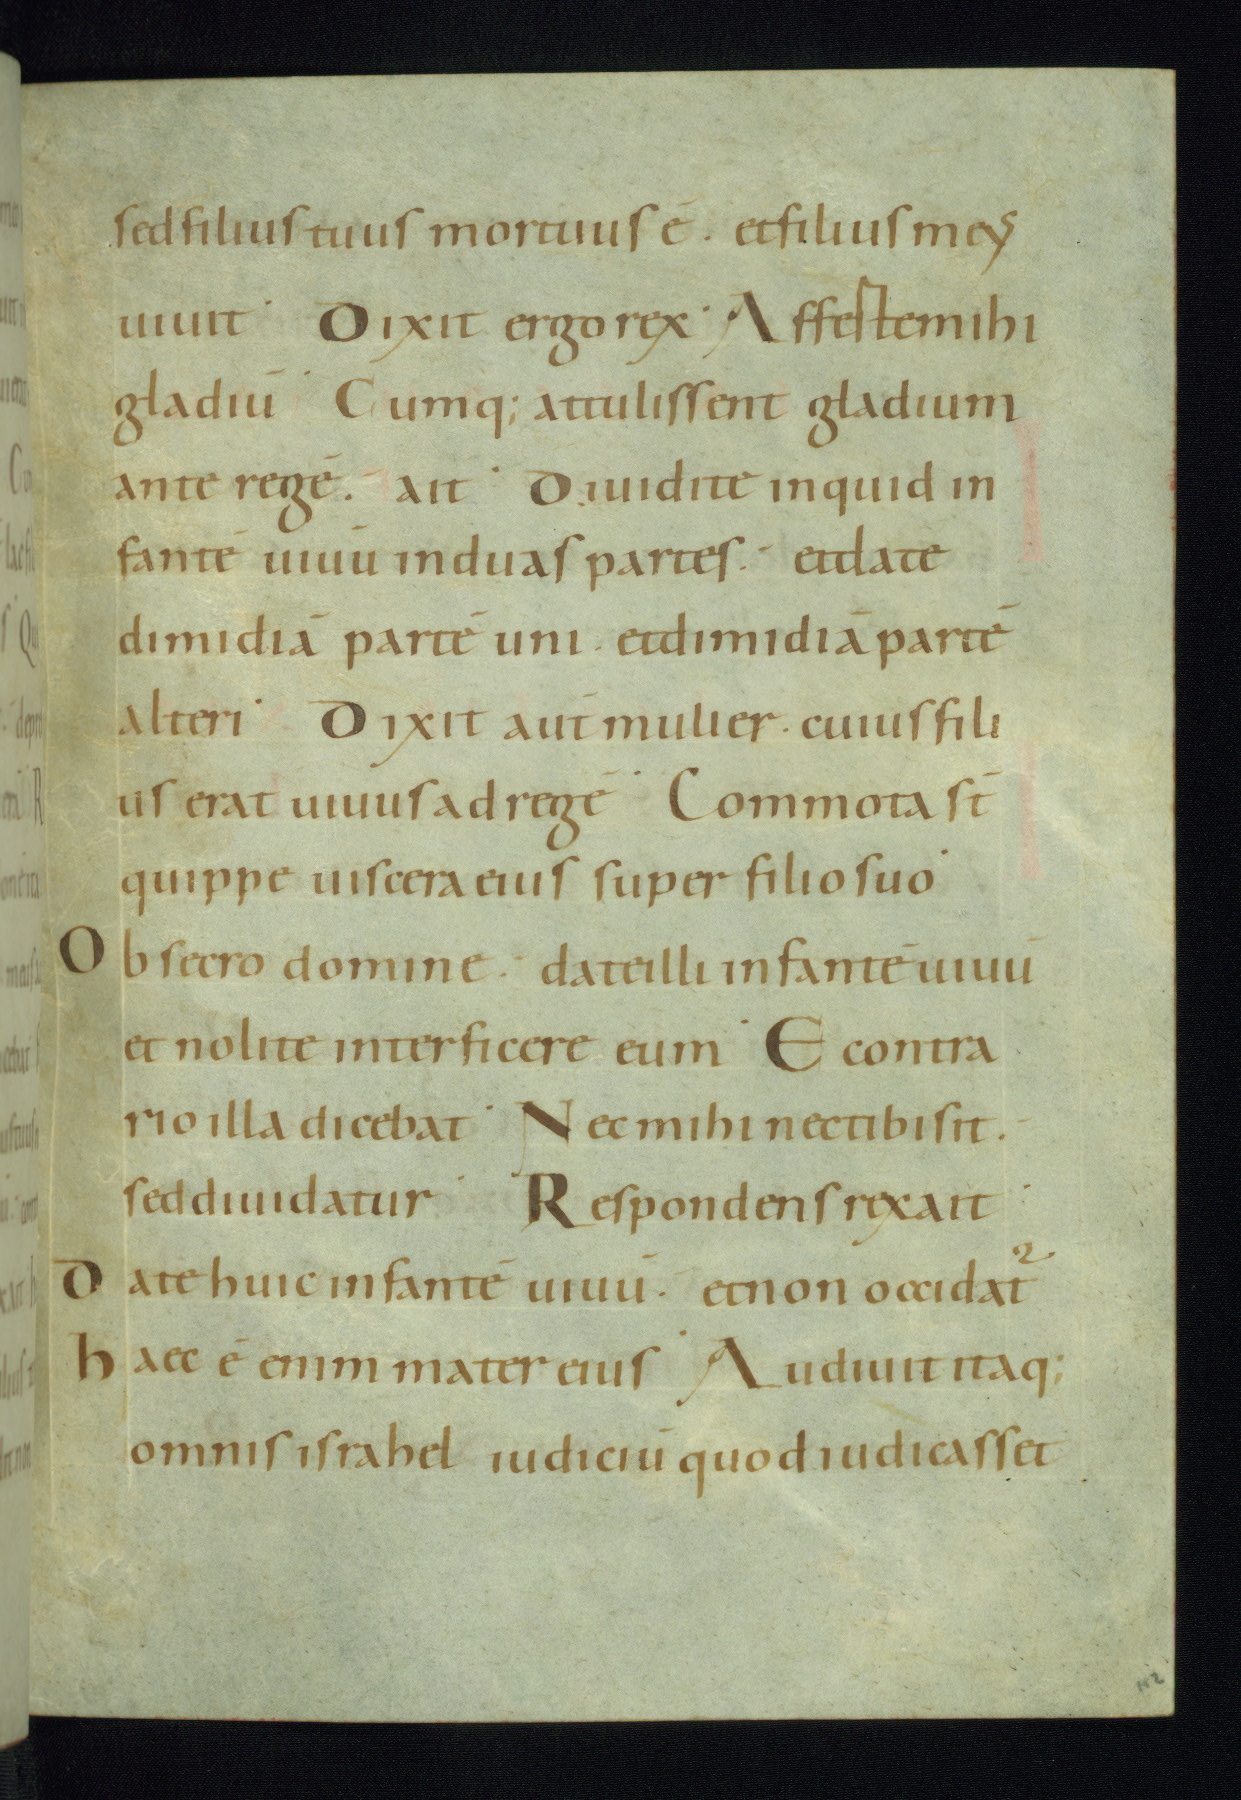 sed filius tuus mortuus ē. et filius meꝰ
uiuit. Dixit ergo rex. Afferte mihi
gladiū. Cumq; attulissent gladium
ante regē. ait. Diuidite inquid in
fantē uiuū in duas partes. et date
dimidiā partē uni. et dimidiā partē
alteri. Dixit aut̄ mulier. cuius fili
us erat uiuus ad regē. Commota st̄
quippe uiscera eius super filio suo.
Obsecro domine. date illi infantē uiuū
et nolite interficere eum. E contra
rio illa dicebat. Nec mihi nec tibi sit.
sed diuidatur. Respondens rex ait.
Date huic infantē uiuū. et non occidat᷑
haec ē enim mater eius. Audiuit itaq;
omnis israhel iudiciū quod iudicasset